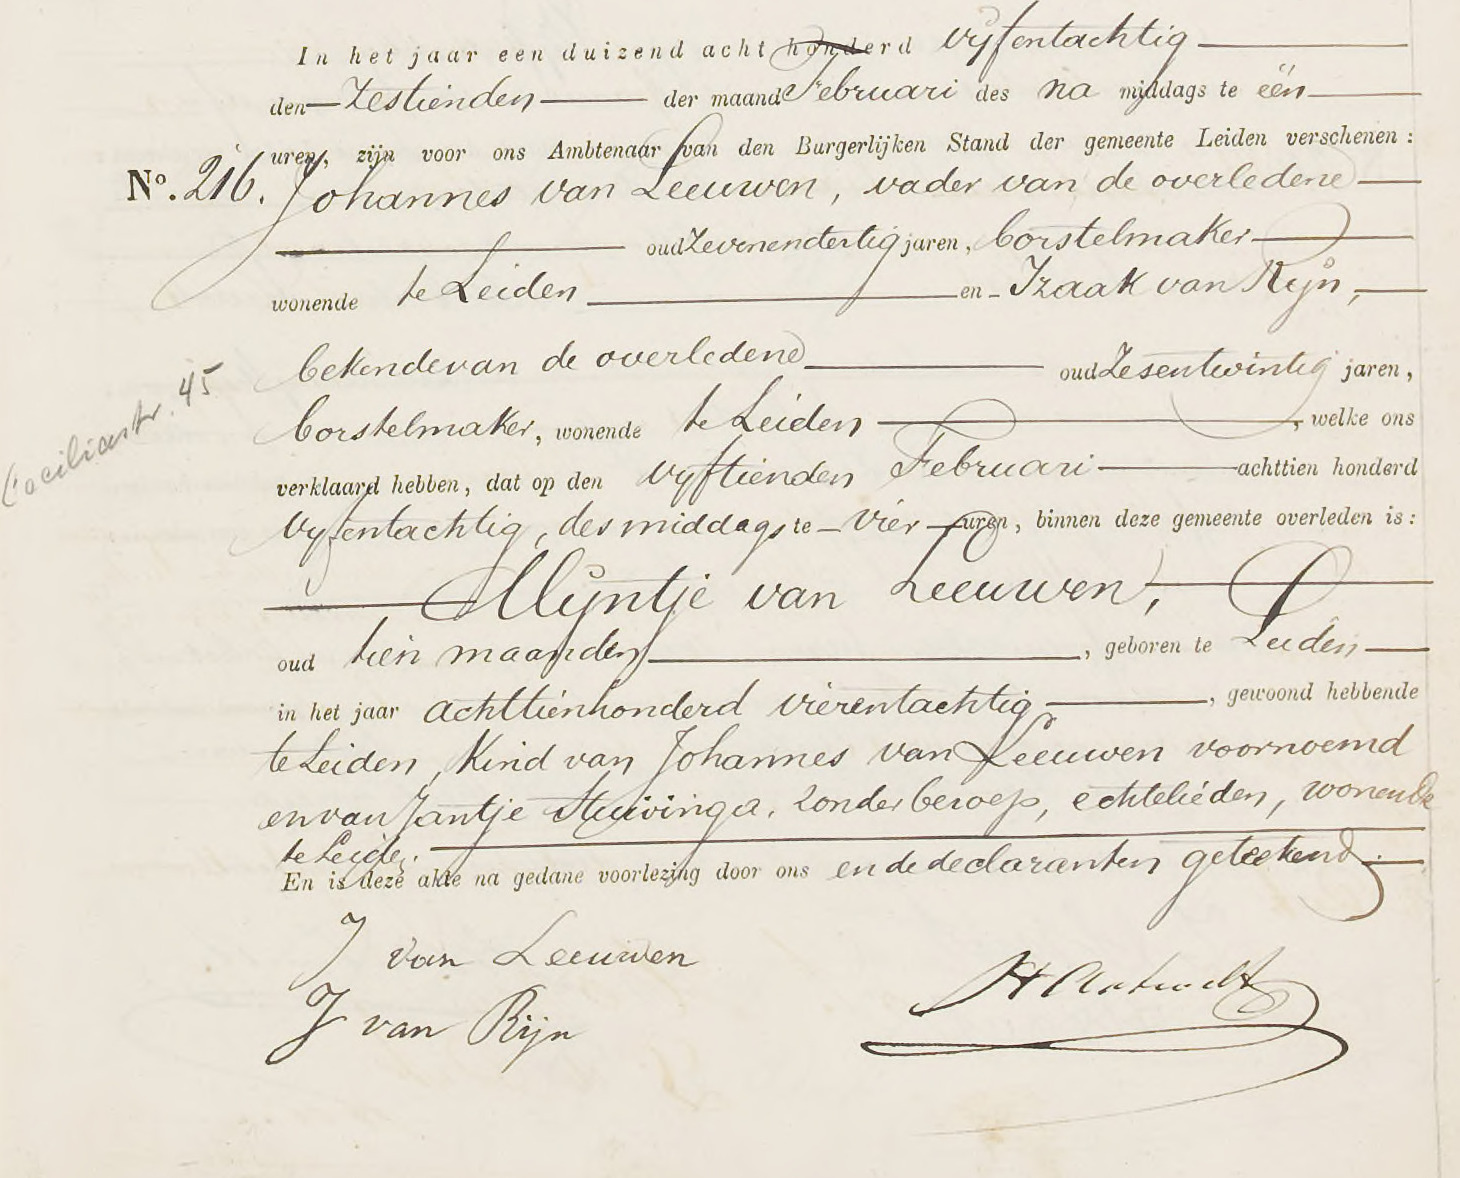 In het jaar een duizend acht honderd vyfentachtig
den zestienden der maand Februari des na middags te één
uren, zijn voor ons Ambtenaar van den Burgerlijken Stand der gemeente Leiden verschenen:
No. 216. Johannes van Leeuwen, vader van de overledene
oud zevenendertig jaren, borstelmaker
wonende te Leiden en Izaak van Ryn,
bekende van de overledene oud zesentwintig jaren,
Caeciliastr. 45
borstelmaker, wonende te Leiden, welke ons
verklaard hebben, dat op den vyftienden Februari achttien honderd
vyfentachtig, des middags te vier uren, binnen deze gemeente overleden is:
Myntje van Leeuwen,
oud tien maanden, geboren te Leiden
in het jaar achttienhonderd vierentachtig, gewoond hebbende
te Leiden, kind van Johannes van Leeuwen voornoemd
en van Jantje Stuivinga, zonder beroep, echtelieden, wonende
te Leiden.
En is deze akte na gedane voorlezing door ons en de declaranten geteekend.
J van Leeuwen
J van Rijn